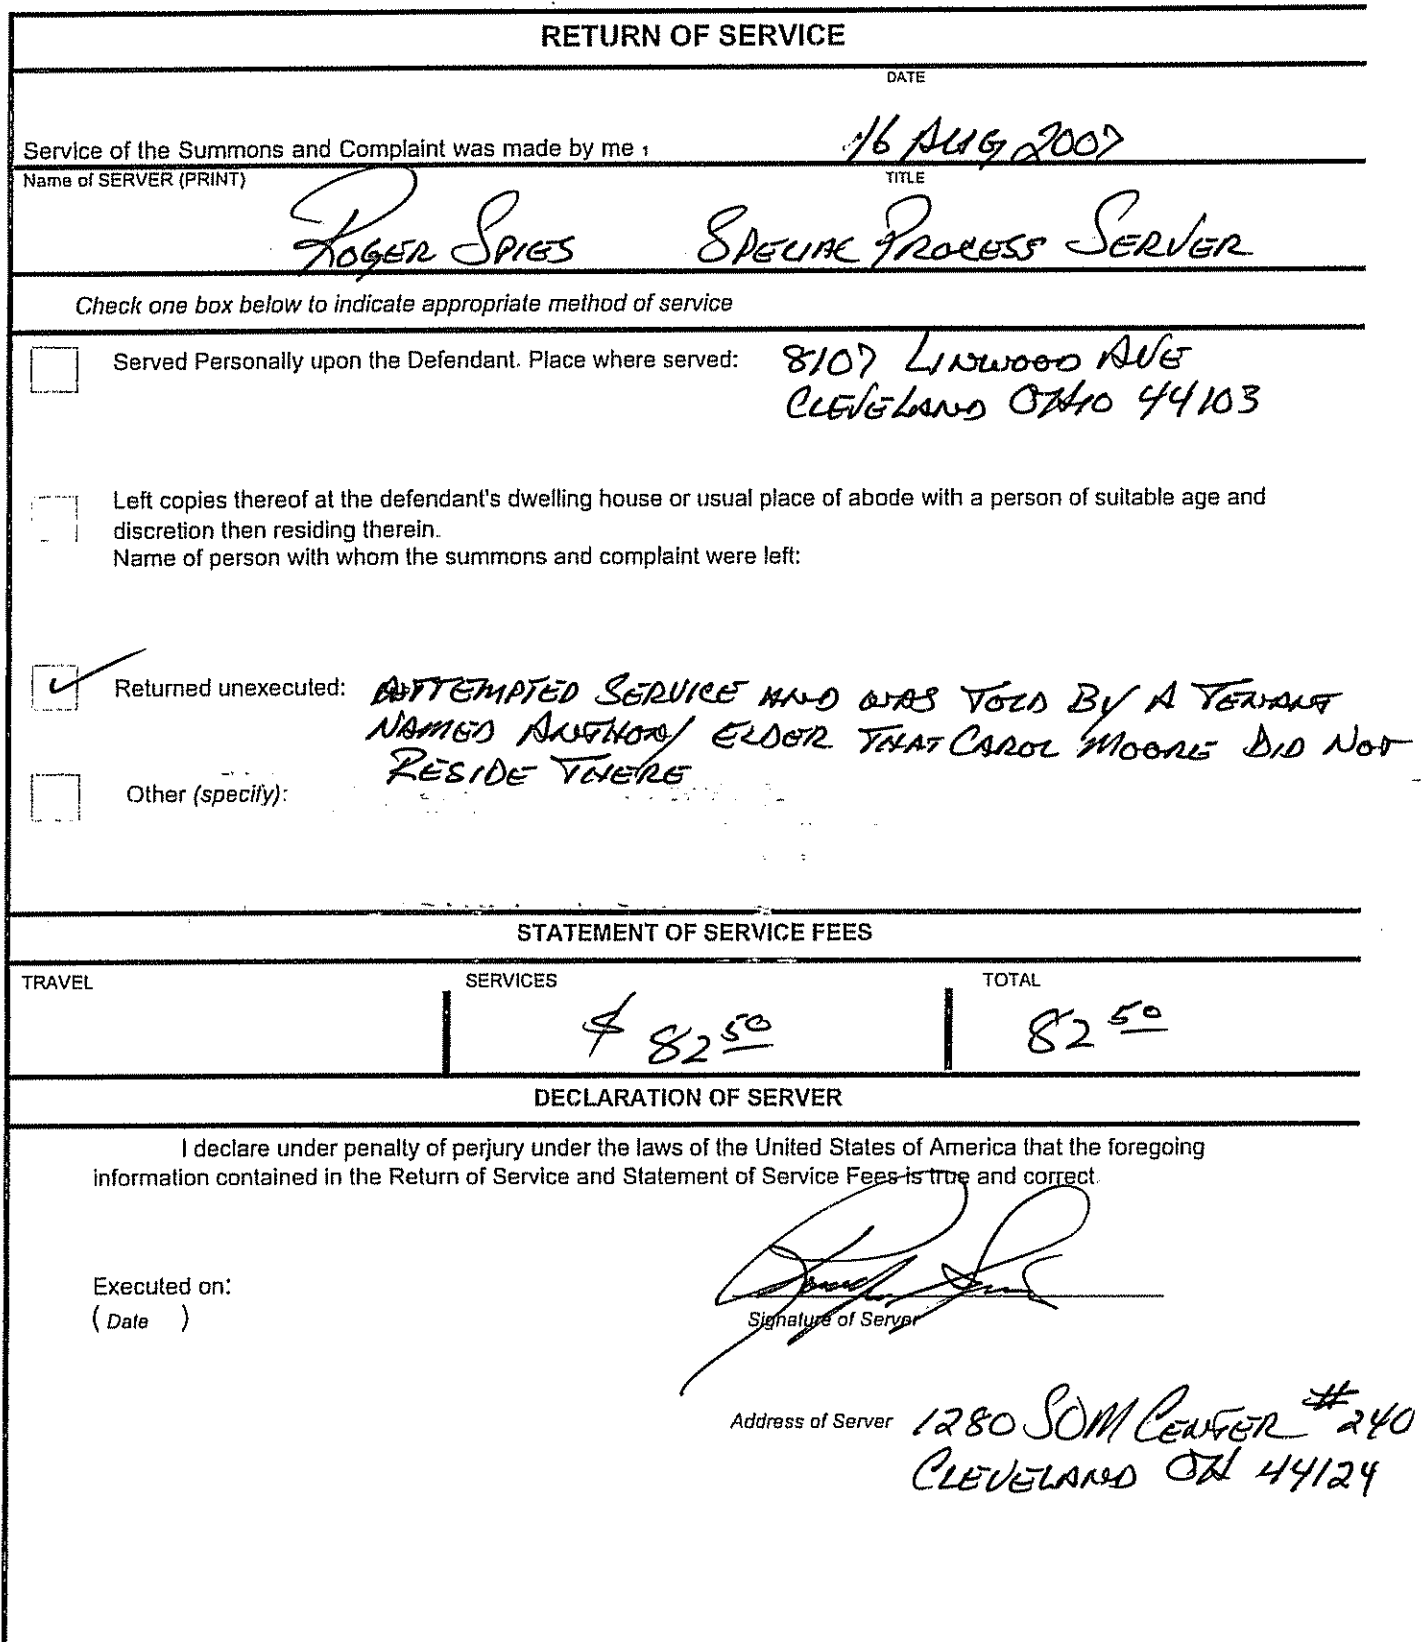 RETURN OF SERVICE
DATE
Service of the Summons and Complaint was made by me 1
16 AUG 2007
Name of SERVER (PRINT)
TITLE
ROGER SPIES SPECIAL PROCESS SERVER
Check one box below to indicate appropriate method of service
Served Personally upon the Defendant. Place where served: 8107 LINWOOD AVE
CLEVELAND OHIO 44103
Left copies thereof at the defendant's dwelling house or usual place of abode with a person of suitable age and
discretion then residing therein.
Name of person with whom the summons and complaint were left:
Returned unexecuted: ATTEMPTED SERVICE AND WAS TOLD BY A TENANT
NAMED ANTHONY ELDER THAT CAROL MOORE DID NOT
RESIDE THERE
Other (specify):
STATEMENT OF SERVICE FEES
TRAVEL SERVICES TOTAL
$ 82 50 82 50
DECLARATION OF SERVER
I declare under penalty of perjury under the laws of the United States of America that the foregoing
information contained in the Return of Service and Statement of Service Fees is true and correct.
Executed on:
( Date )
Signature of Server
Address of Server 1280 SOM CENTER #240
CLEVELAND OH 44124